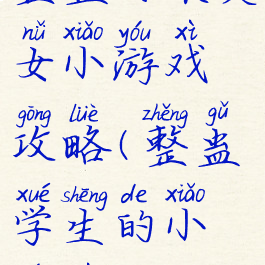 nǚ xiǎo yóu xì
女小游戏
gōng lüè zhěng gǔ
攻略(整蛊
xué shēng de xiǎo
学生的小